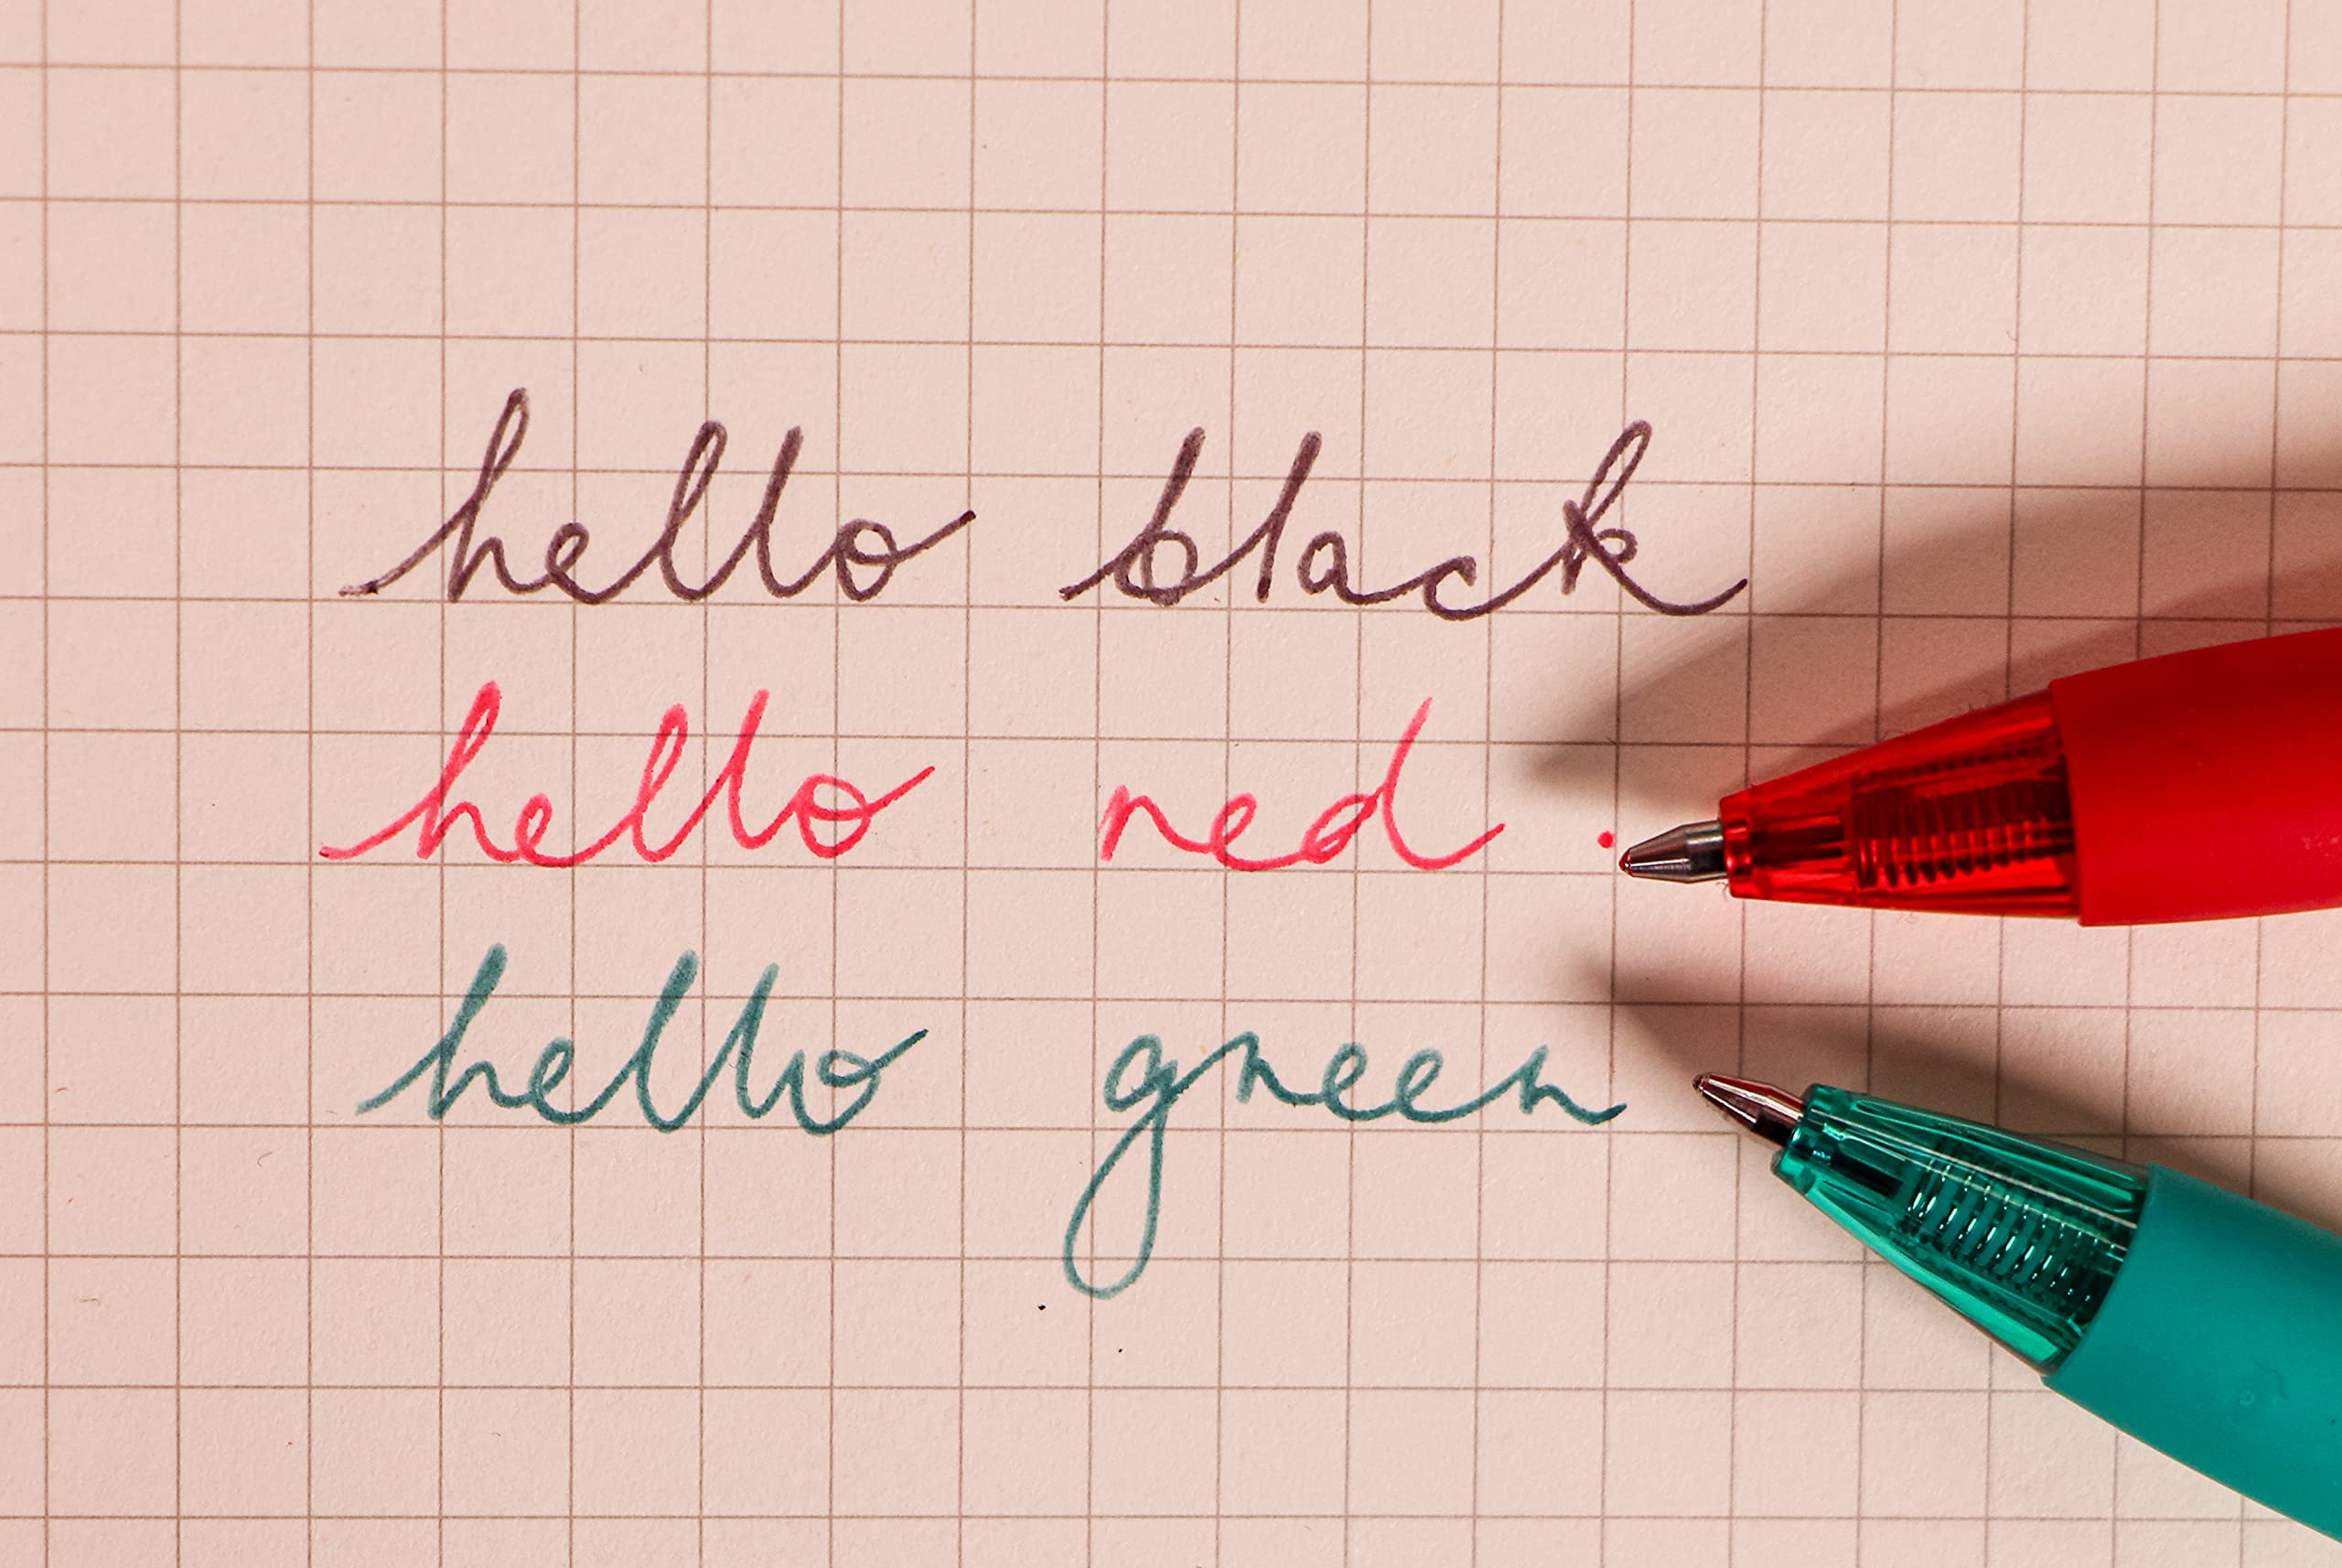 hello black
hello red .
hello green